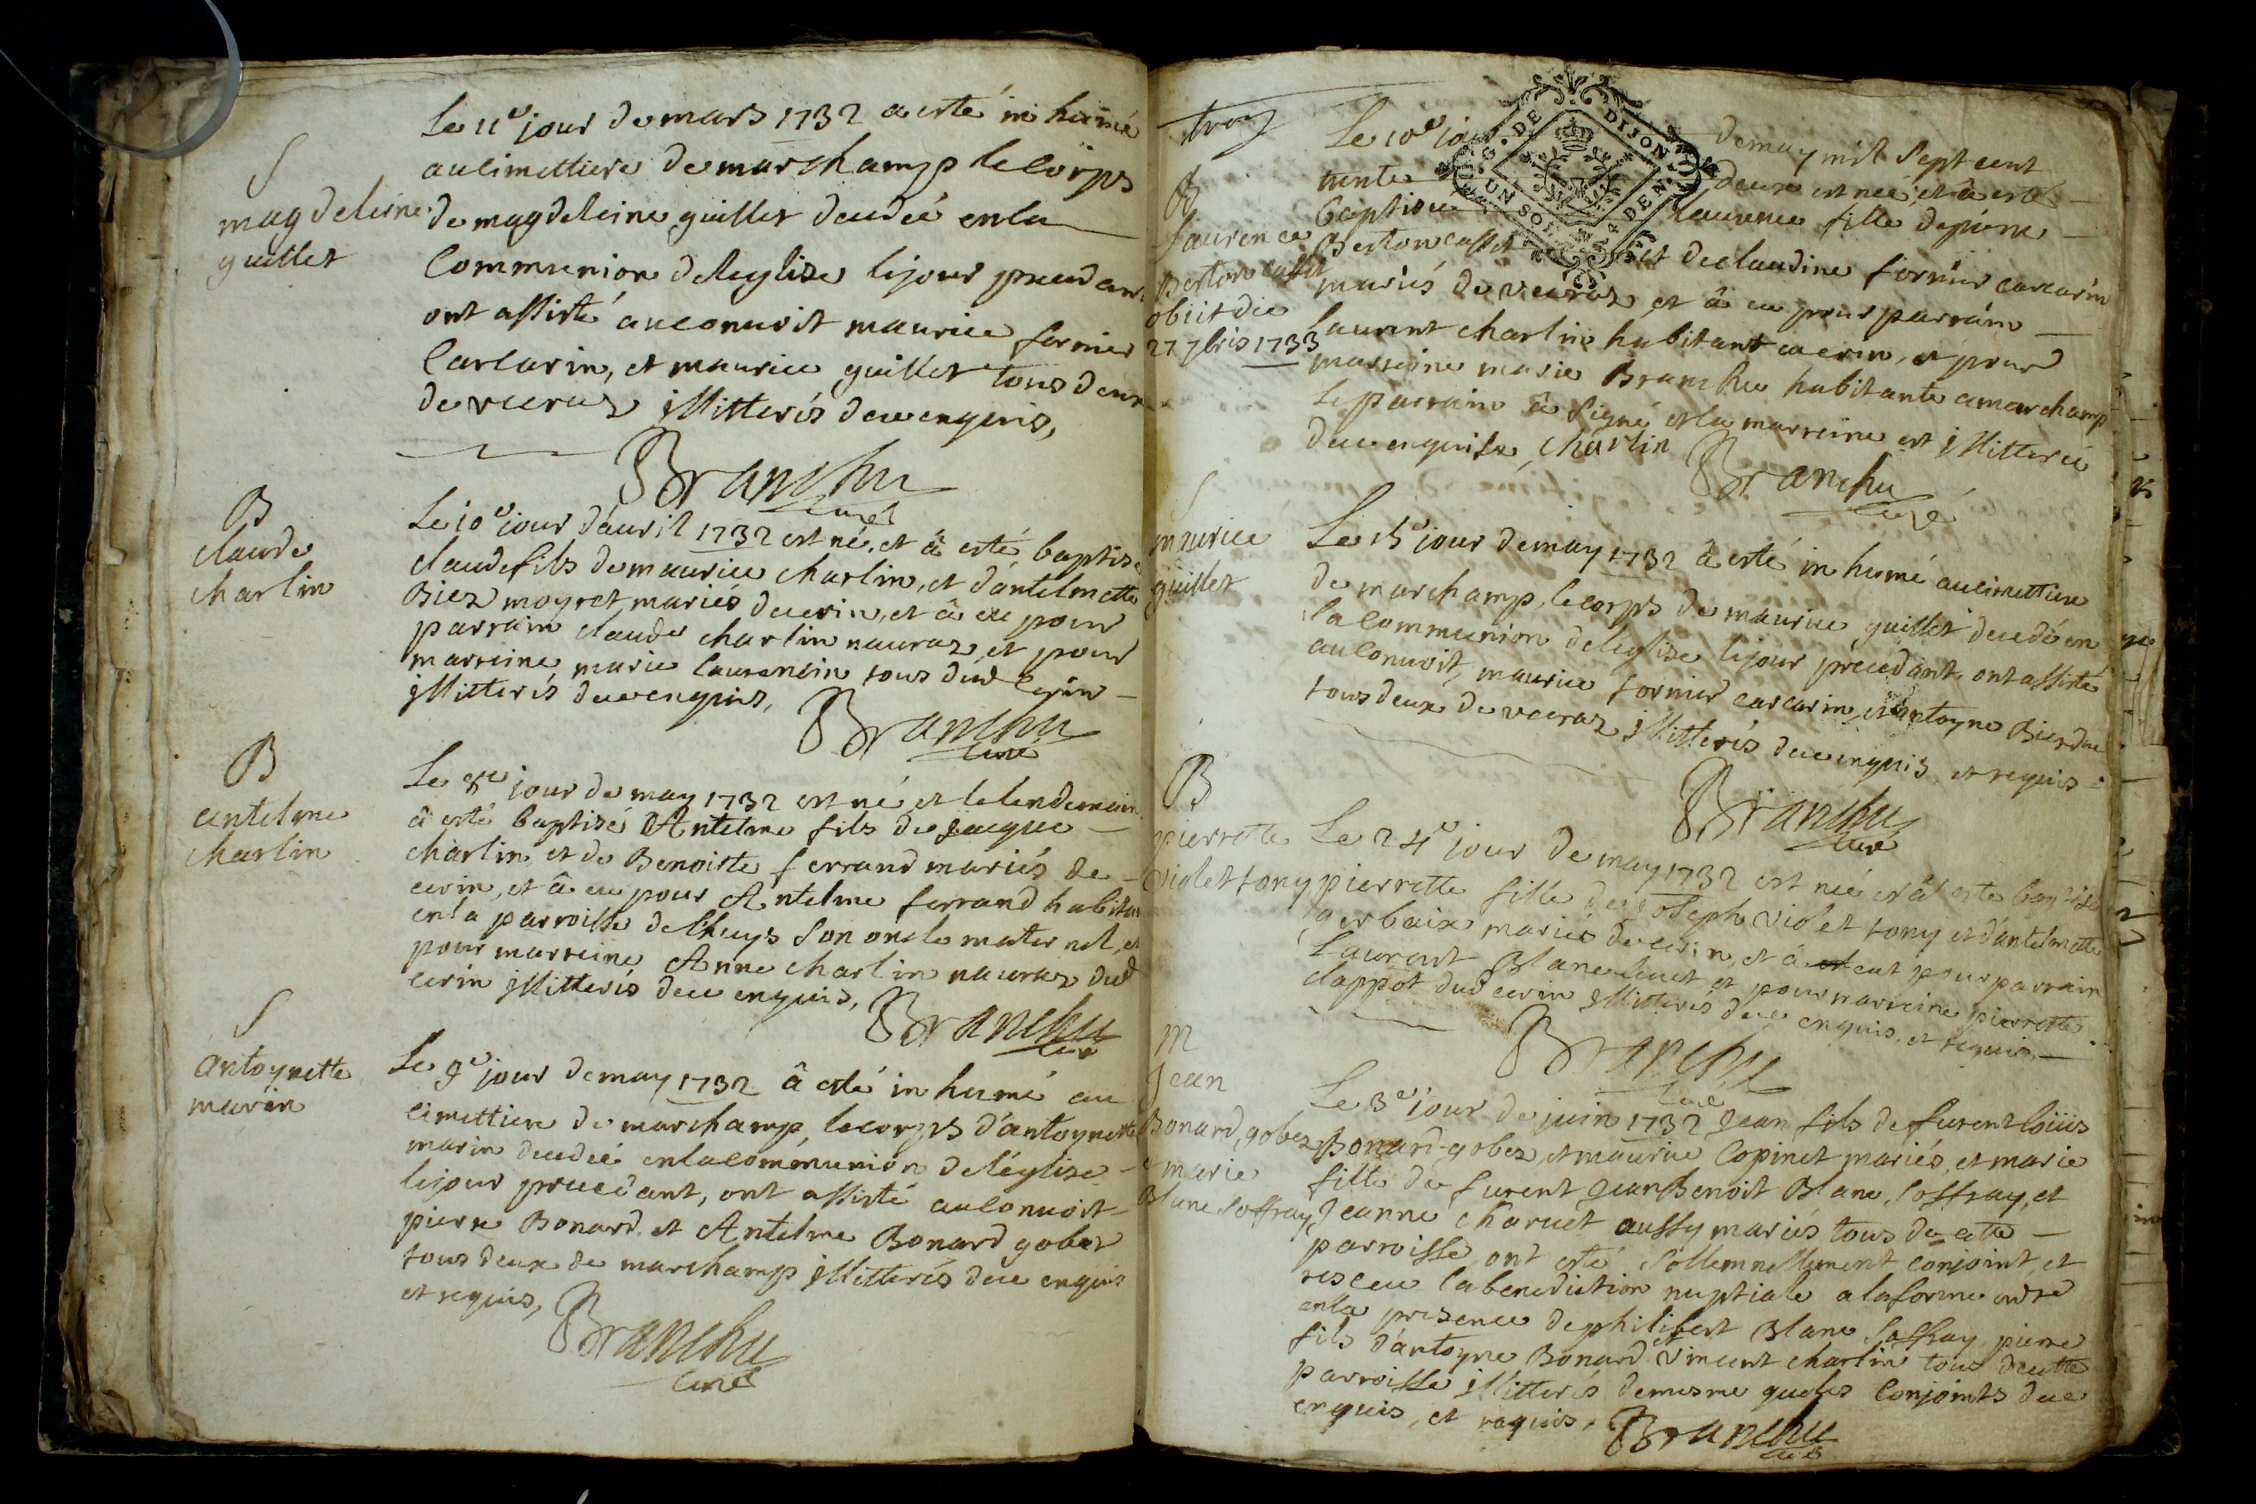 S
magdeleine
guillet
Le 11e jour de mars 1732 a esté inhumé
au cimettiere de marchamp le corps
de magdeleine guillet decedée en la
Communion de l'eglise le jour precedent
ont assisté au convoit maurice fornier
Carcarin, et maurice guillet tous deux
de veeraz jllitterés de ce enquis,
Branchu
curé
B
claude
charlin
Le 10e jour d'auril 1732 est né, et â esté baptisé
claude fils de maurice charlin, et d'antelmette
Biez moyret mariés de cerin, et â eu pour
parrain claude charlin nauraz, et pour
marreine marie laurencin tous dud Cerin
jllitterés de ce enquis,
Branchu
curé
B
antelme
charlin
Le 8e jour de may 1732 est né et le lendemain
â esté baptisé Antelme fils de Jacque
charlin, et de Benoiste ferrand mariés de
cerin, et â eu pour Antelme ferrand habitant
en la parroisse de lhuys son oncle maternel, et
pour marreine Anne charlin nauraz dud
cerin jllitterés de ce enquis,
Branchu
curé
S
antoynette
marin
Le 9e jour de may 1732 â esté inhumé au
cimettiere de marchamp, le corps d'antoynette
marin decedée en la communion de l'église
le jour precedant, ont assisté au convoit
pierre Bonard, et Antelme Bonard gobez
tous deux de marchamp jllitterés de ce enquis
et requis,
Branchu
curé
troy
G. DE DIJON
UN SOL 4 DEN.
B
Laurence
Berton cassit
obiit die
27 7bris 1733
Le 10e jour de may mil sept cent
trente deux est née, et â esté
baptisée laurence fille de pierre
Berton cassit et de claudine fornier carcarin
mariés de veeraz et â eu pour parrain
laurent charlin habitant a cerin, et pour
marreine marie Branchu habitante a marchamp
Le parrain â signé et la marreine est jllitterée
de ce enquise, charlin
Branchu
curé
S
maurice
guillet
Le 15e jour de may 1732 â esté inhumé au cimettiere
de marchamp, le corps de maurice guillet decedé en
la Communion de l'eglise le jour précedant, ont assisté
au convoit, maurice fornier carcarin, et antoyne Biez
tous deux de veeraz jllitterés de ce enquis et requis
Branchu
curé
B
pierrette
violet tony
Le 24e jour de may 1732 est née et â esté baptisée
pierrette fille de joseph violet tony et d'antelmette
gerbaix mariés de cerin, et â eut pour parrain
Laurent Blanc et pour marreine pierrette
clappot dud cerin jllitterés de ce enquis, et requis
Branchu
curé
m
Jean
Bonard, gobez
et marie
Blanc soffray
Le 3e jour de juin 1732 Jean fils de furent loüis
Bonard-gobez, et maurice Copinet mariés, et marie
fille de furent Jean Benoit Blanc, soffray, et
Jeanne charuet aussy mariés tous de cette
parroisse, ont esté sollemnellement conjoint, et
resceu la benediction nuptiale a la forme ord.re
en la presence de philibert Blanc soffray pierre
fils d'antoyne Bonard et vincent charlin tous de cette
parroisse jllitterés de mesme que les Conjoints de ce
enquis, et requis,
Branchu
curé